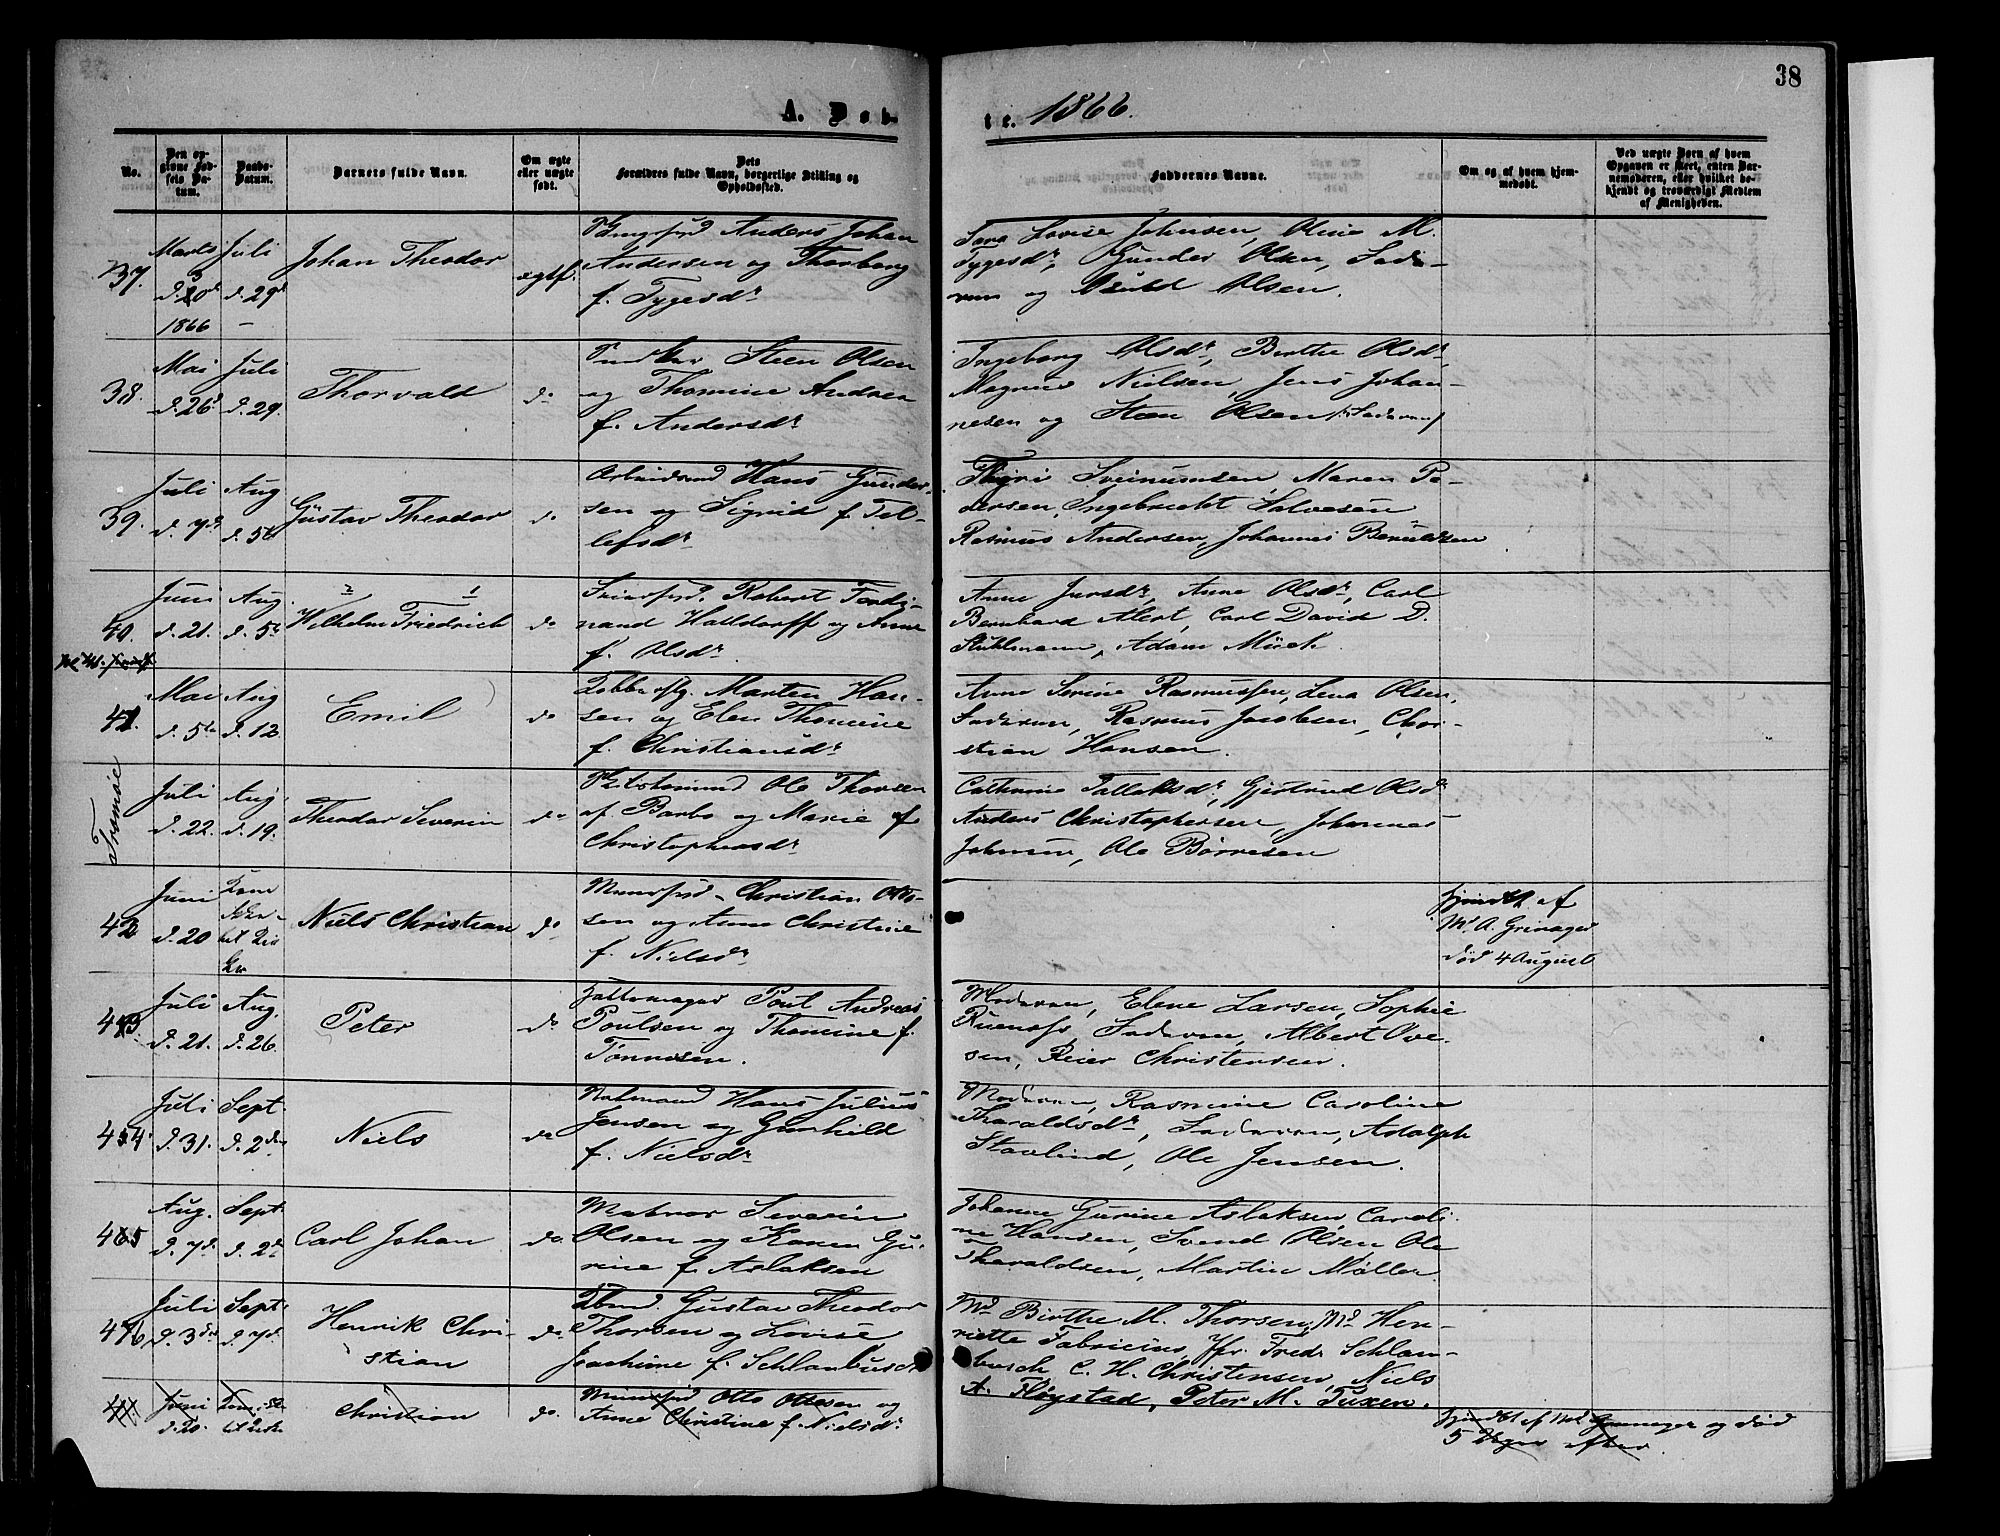 38
A. Døb-
te. 1866.
No.
Den op-
givne Fød-
sels Da-
tum.
Daabs-
Datum.
Barnets fulde Navn.
Om ægte
eller uægte
født.
Dets
Forældres fulde Navn, borgerlige Stilling og
Opholdssted.
Faddernes Navne.
Om og af hvem hjem-
medøbt.
Ved uægte Børn af hvem
Opgaven er skeet, enten Bar-
nemoderen, eller hvilket be-
kjendt og troværdigt Medlem
af Menigheden.
37.
Marts
d. 20d
1866
Juli
d. 29d
Johan Theodor
ægtef.
Anders Johan
Andersen og Thorborg
f. Tygesdr
Sara Lovise Johnsen, Oline M.
Tygesdr, Gunder Olsen, Fade-
ren og Olsen.
38.
Mai
d. 26d
Juli
d. 29.
Thorvald
do
Steen Olsen
og Thomine Andrea
f. Andersdr
Ingeborg Olsdr, Birthe Olsdr
Magnus Nielsen, Jens Johan-
nesen og Steen Olsen /: Faderen/
39.
Juli
d. 7d.
Aug
d. 5te
Gustav Theodor
do
Arbeidsmd Hans Gunder-
sen og Sigrid f. Tel-
lefsdr
Sveinumsen, Maren Pe-
dersen, Ingebrecht Salvesen
Rasmus Andersen, Johannes
40.
Juni
d. 21.
Aug.
d. 5te
2 1
Wilhelm Friedrich
do
Robert Ferdi-
nand Halldorff og Anne
f. Olsdr
Anne Jensdr, Anne Olsdr, Carl
Bernhard Alert, Carl David D.
Stuhlmann, Adam Mück
41.
Mai
d. 5te
Aug
d. 12
Emil
do
Marten Han-
sen og Elen Thomine
f. Christiansdr
Anne Serine Rasmussen, Lena Olsen,
Faderen, Rasmus Jacobsen, Chri-
stian Hansen.
Tromøe
Juli
d. 22.
Aug.
d. 19.
Theodor Severin
do
Ole Thorsen
af Barbo og Marie f.
Christophersdr
Cathrine Tallaksdr, Gjertrud Olsdr
Anders Christophersen, Johannes
Johnsen, Ole Börresen
42
Juni
d. 20
Niels Christian
do
Christian Otto-
sen og Anne Christine
f. Nielsdr
af
Md. A. Grevager
död 4 August
43.
Juli
d. 21.
Aug.
d. 26.
Peter
do
Poul Andreas
Poulsen og Thomine f.
Tönnesen.
Moderen, Elene Larsen, Sophie
Faderen, Albert Ove-
sen, Reier Christensen.
44.
Juli
d. 31.
Sept.
d. 2den
Niels
do
Hans Julius
Jensen og Gunhild
f. Nielsdr
Moderen, Rasmine Caroline
Tharaldsdr, Faderen, Adolph
Stavlind, Ole Jensen.
45
Aug.
d. 7d.
Sept.
d. 2d
Carl Johan
do.
Matros Severin
Olsen og Karen Gu-
rine f. Aslaksen
Johanne Gurine Aslaksen, Caroli-
ne Hansen, Svend Olsen, Ole
Tharaldsen, Martin Møller.
46
Juli
d. 3die
Sept.
d. 7d.
Henrik Chri-
stian
do
Gustav Theodor
Thorsen og Lovise
Joachime f. Schlanbusch
Md. Birthe M. Thorsen, Md. Hen-
riette Fabricius, Jfr. Fred. Schlan-
busch, C. H. Christensen, Niels
A. Fløystad, Peter M. Tuxen.
Juni
d. 20.
Christian
do.
Otto Ottesen og
Anne Christine f. Nielsdr
af Md. Grenager og död
5 Uger efter.